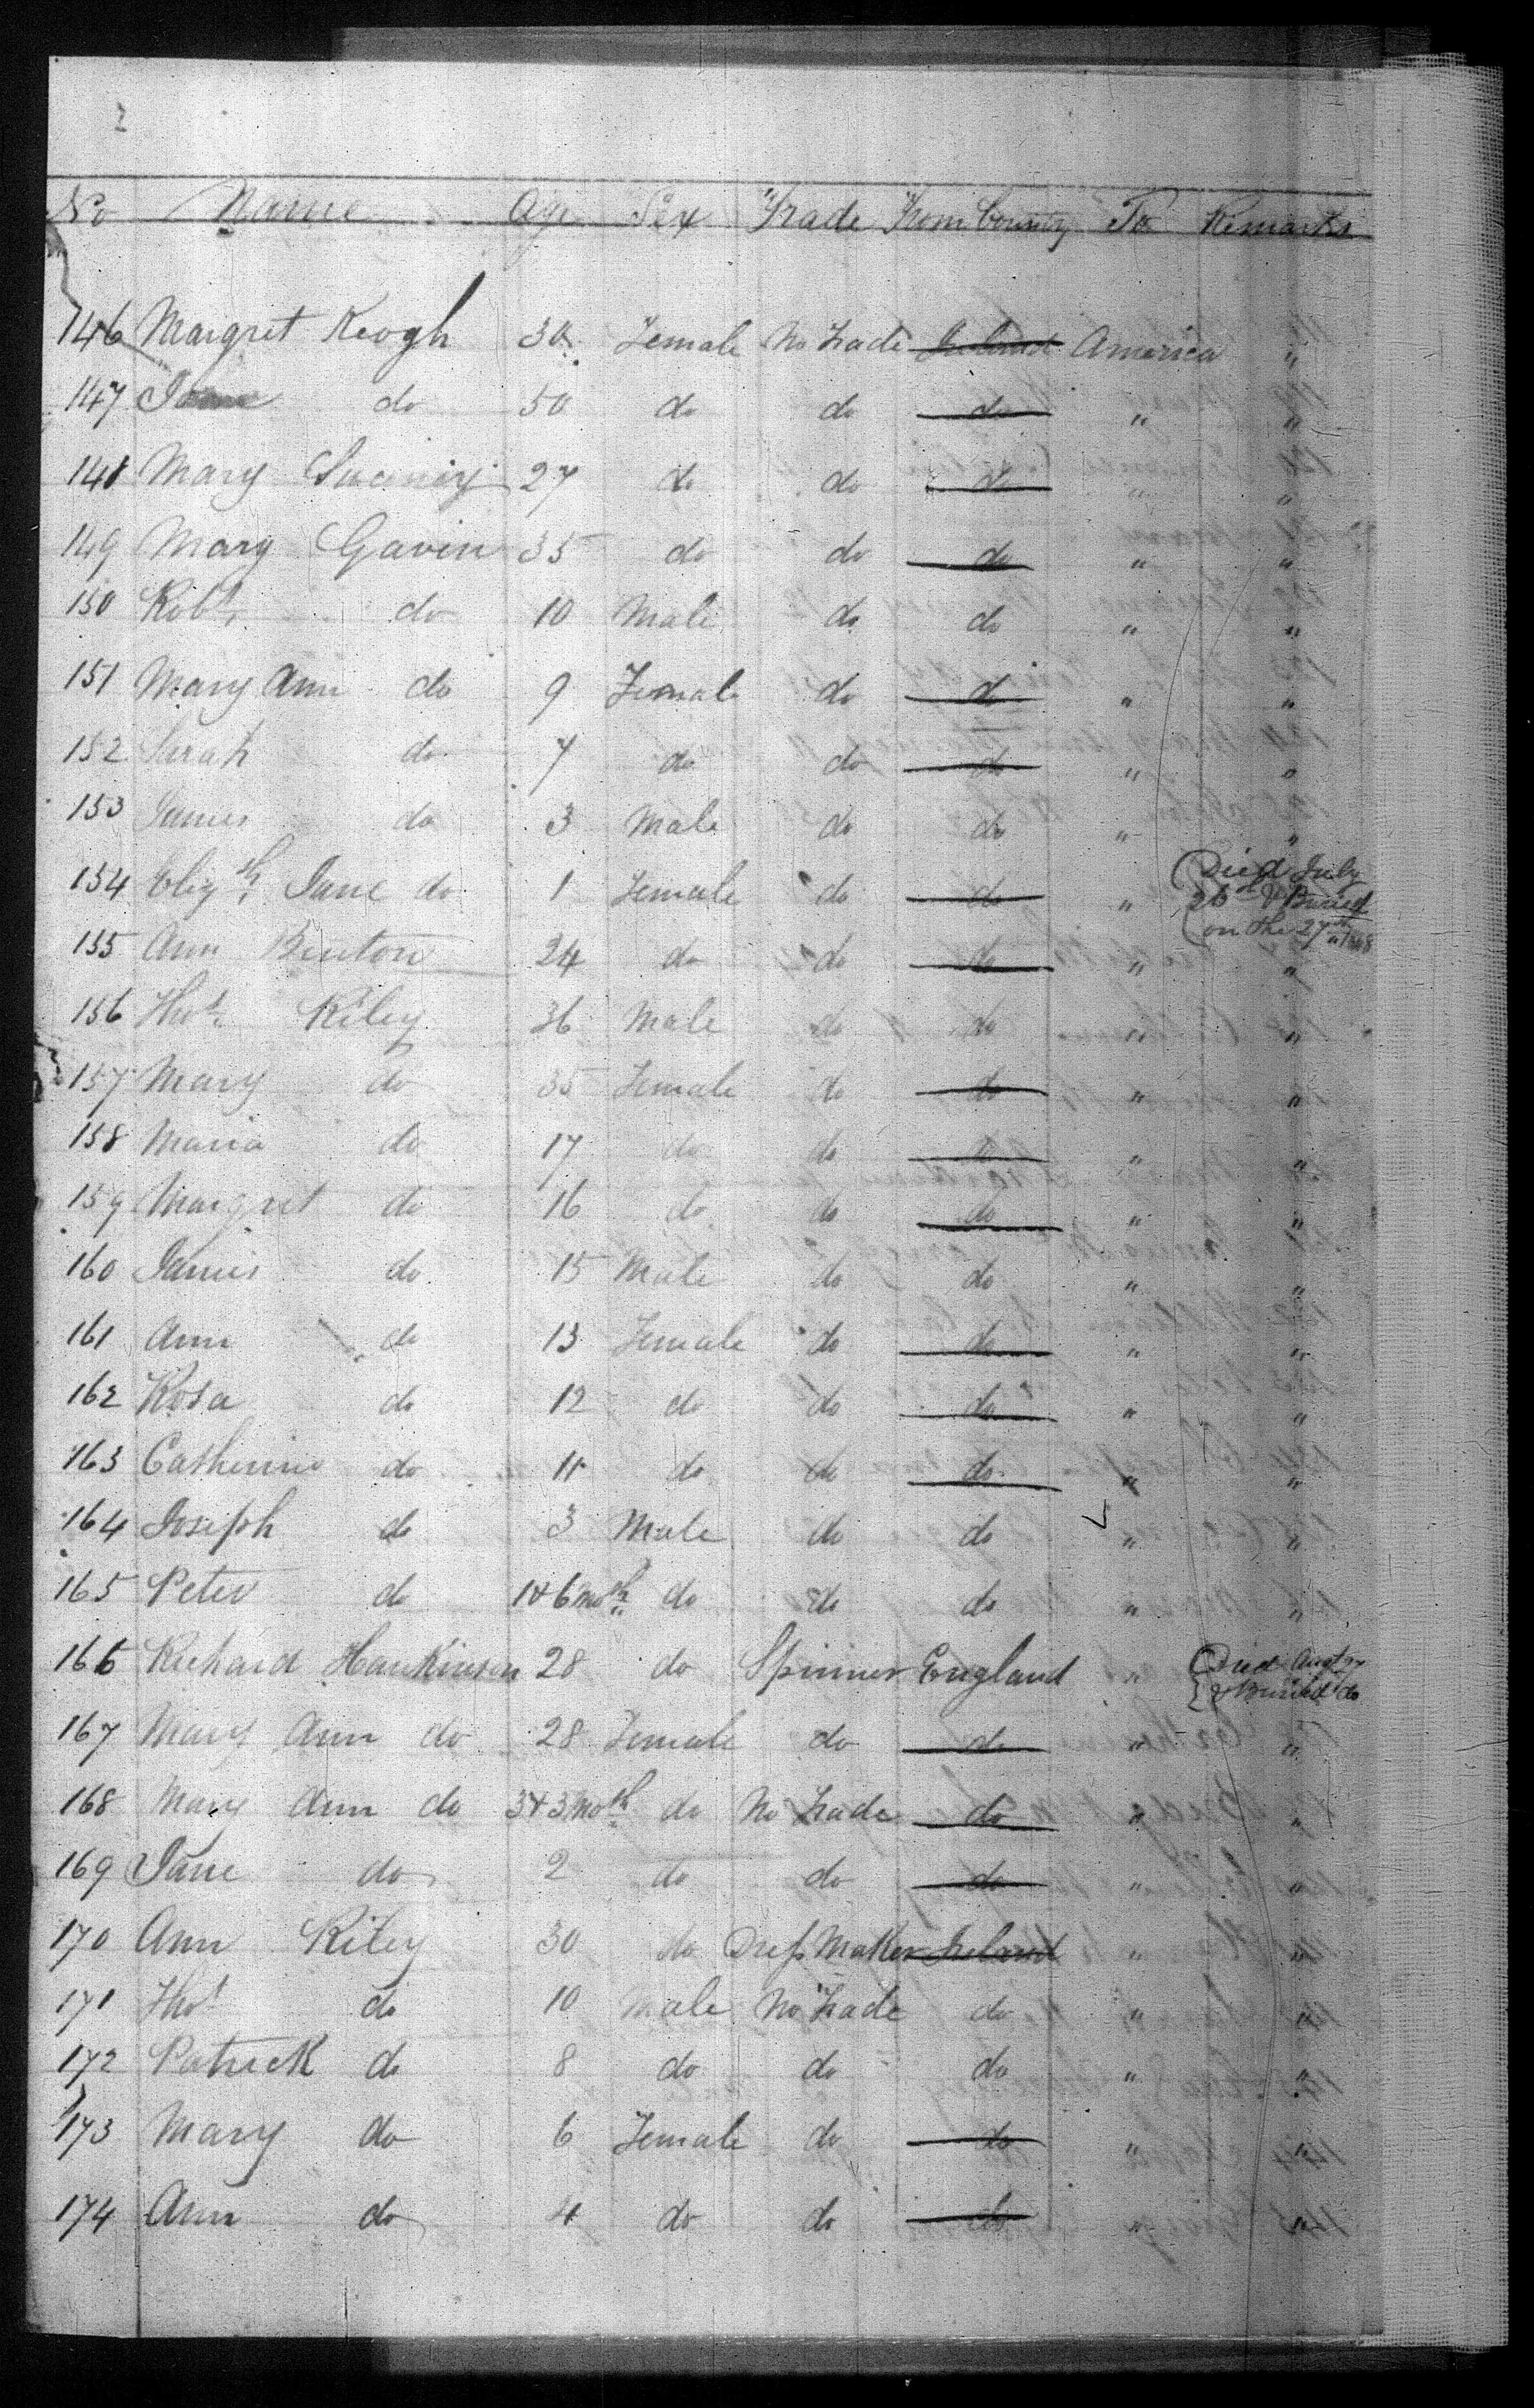 2
No Name Age Sex Trade From County To Remarks
146 Margret Keogh 30 Female No Trade Ireland America "
147 Jane do 50 do do do " "
148 Mary Sweeniy 27 do do do " "
149 Mary Gavin 35 do do do " "
150 Robt. do 10 Male do do " "
151 Mary Ann do 9 Female do do " "
152 Sarah do 7 do do do " "
153 James do 3 Male do do " "
154 Elizth. Jane do 1 Female do do " Died July
26th & Buried
on the 27th
155 Ann Benton 24 do do do " "
156 Thos. Riley 36 Male do do " "
157 Mary do 35 Female do do " "
158 Maria do 17 do do do " "
159 Margret do 16 do do do " "
160 James do 15 Male do do " "
161 Ann do 13 Female do do " "
162 Rosa do 12 do do do " "
163 Catherine do 11 do do do " "
164 Joseph do 3 Male do do " "
165 Peter do 1 & 6 moth do do do "
166 Richard Hankinson 28 do Spinner England " Died Augt 27
& Buried do
167 Mary Ann do 28 Female do do " "
168 Mary Ann do 3 & 3 Moth do No Trade do " "
169 Jane do 2 do do do " "
170 Ann Riley 30 do Dress Maker Ireland " "
171 Thos do 10 Male No Trade do " "
172 Patrick do 8 do do do " "
173 Mary do 6 Female do do " "
174 Ann do 4 do do do " "